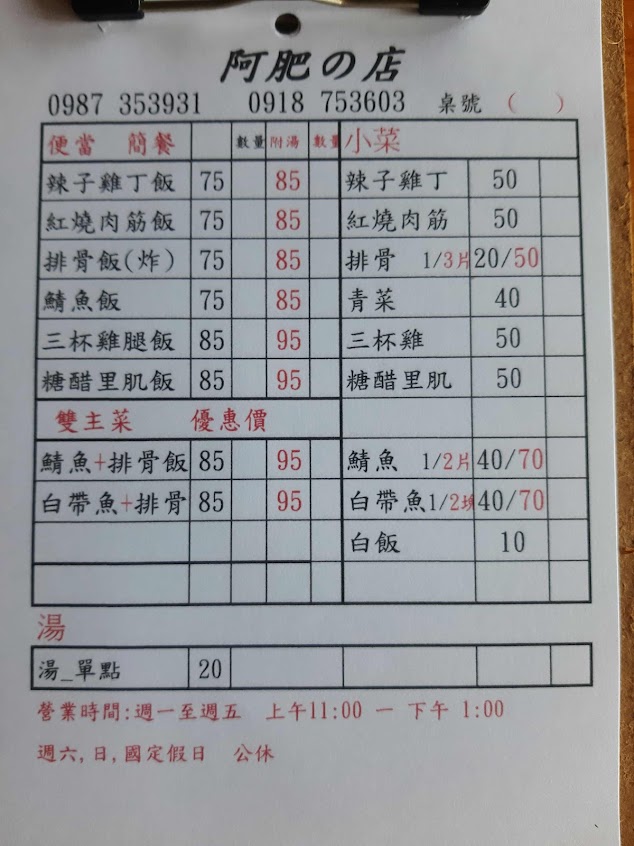 阿肥の店
0987 353931 0918 753603 桌號 ( )
便當 簡餐 數量 附湯 數量 小菜
辣子雞丁飯 75 85 辣子雞丁 50
紅燒肉筋飯 75 85 紅燒肉筋 50
排骨飯(炸) 75 85 排骨 1/3片 20/50
鯖魚飯 75 85 青菜 40
三杯雞腿飯 85 95 三杯雞 50
糖醋里肌飯 85 95 糖醋里肌 50
雙主菜 優惠價
鯖魚+排骨飯 85 95 鯖魚 1/2片 40/70
白帶魚+排骨 85 95 白帶魚1/2 40/70
白飯 10
湯
湯_單點 20
營業時間:週一至週五 上午11:00 一 下午 1:00
週六,日,國定假日 公休